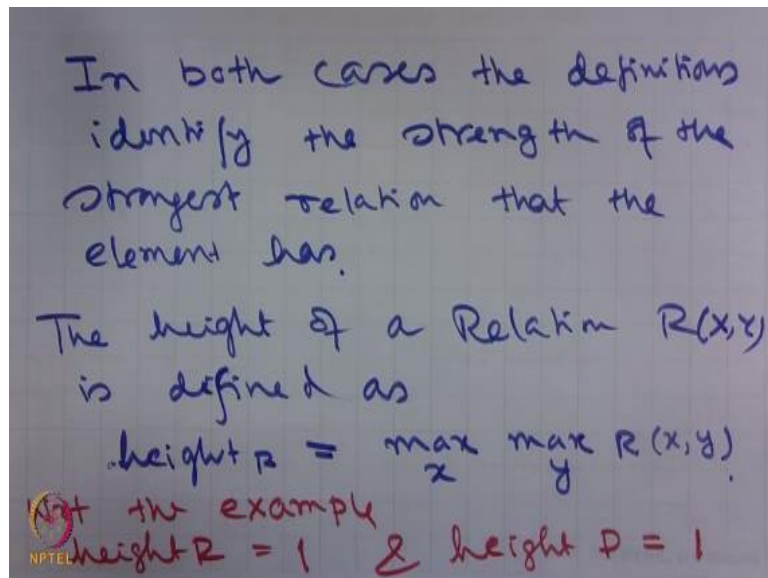 In both cases the definitions
identify the strength of the
strongest relation that the
element has.
The height of a Relation R(X,Y)
is defined as
height R = max x max y R(x,y).
the example
NPTEL height R = 1 & height P = 1